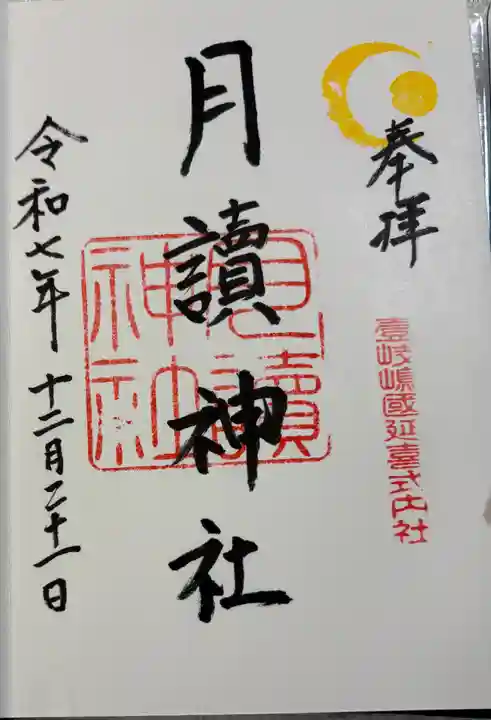 奉拝
壹岐嶋國延喜式内社
月讀神社
月讀神社
令和七年十二月二十一日